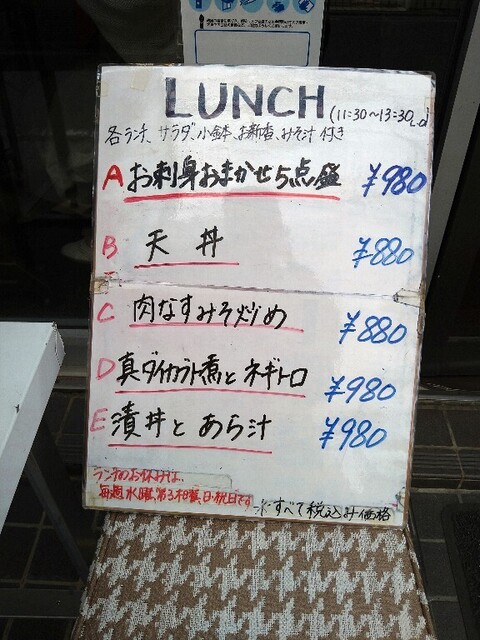 LUNCH (11:30〜13:30L.o)
各ランチ、サラダ、小鉢、お新香、みそ汁 付き
A お刺身おまかせ5点盛 ¥980
B 天丼 ¥880
C 肉なすみそ炒め ¥880
D 真ダイカブト煮とネギトロ ¥980
E 漬丼と あら汁 ¥980
ランチのお休みは、
毎週水曜、第3火曜、日・祝日です
※すべて税込み価格